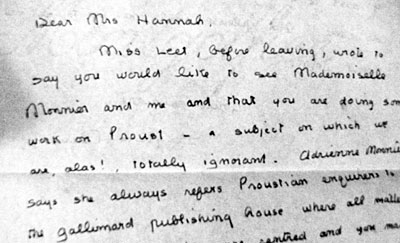 Dear Mrs Hannah,
Miss Leet, before leaving, wrote to
say you would like to see Mademoiselle
Monnier and me and that you are doing som
work on Proust - a subject on which we
are, alas!, totally ignorant. Adrienne Monnie
says she always refers Proustian enquirers to
the Gallimard publishing house where all matte
centred and you ma